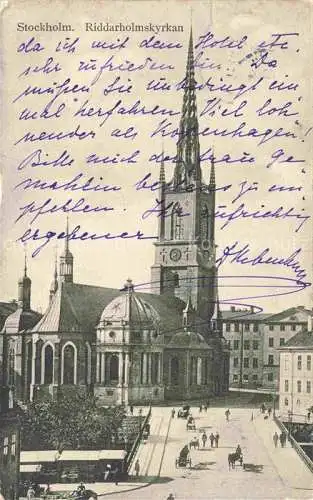 Stockholm. Riddarholmskyrkan
da ich mit dem Hotel etc.
sehr zufrieden bin. Da
müßen Sie unbedingt ein-
mal herfahren. Viel loh-
nender als Kopenhagen!
Bitte mich der Frau Ge-
mahlin bestens zu em-
pfehlen. Ihr aufrichtig
ergebener